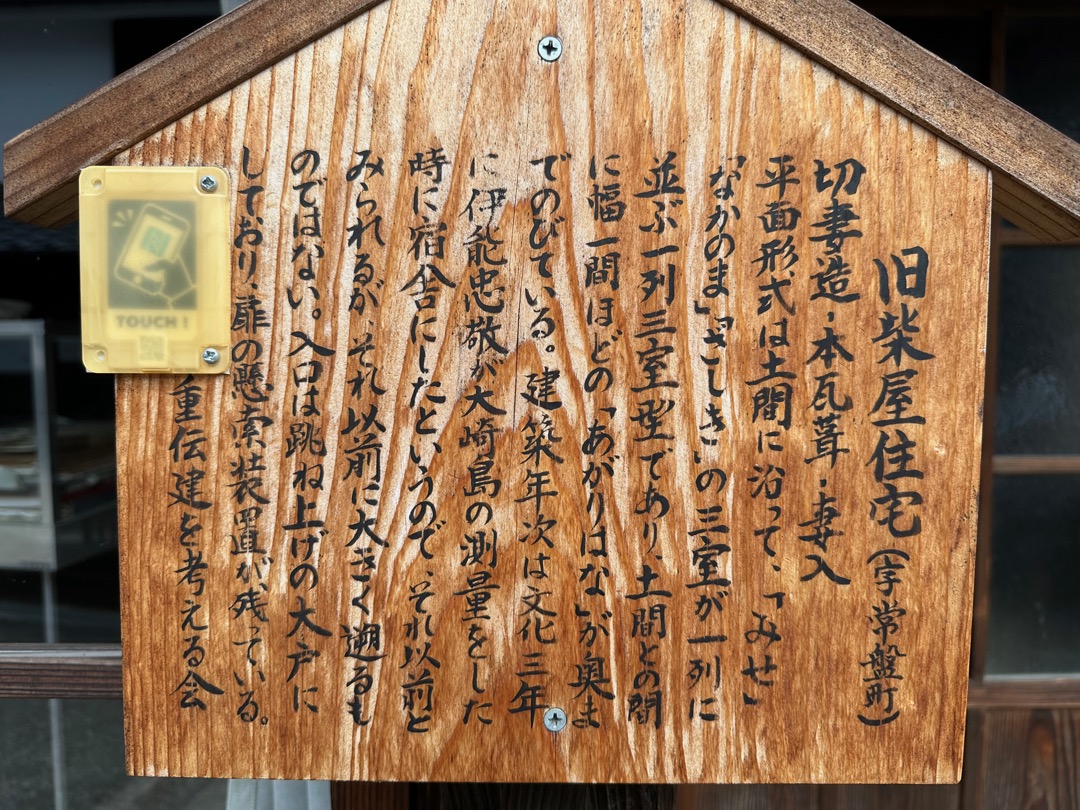 旧柴屋住宅(字常盤町)
切妻造・本瓦葺・妻入
平面形式は土間に沿って、「みせ」
「なかのま」「ざしき」の三室が一列に
並ぶ一列三室型であり、土間との間
に幅一間ほどの「あがりはな」が奥ま
でのびている。建築年次は文化三年
に伊能忠敬が大崎島の測量をした
時に宿舎にしたというので、それ以前と
みられるが、それ以前に大きく遡るも
のではない。入口は跳ね上げの大戸に
しており、扉の懸索装置が残っている。
重伝建を考える会
TOUCH!